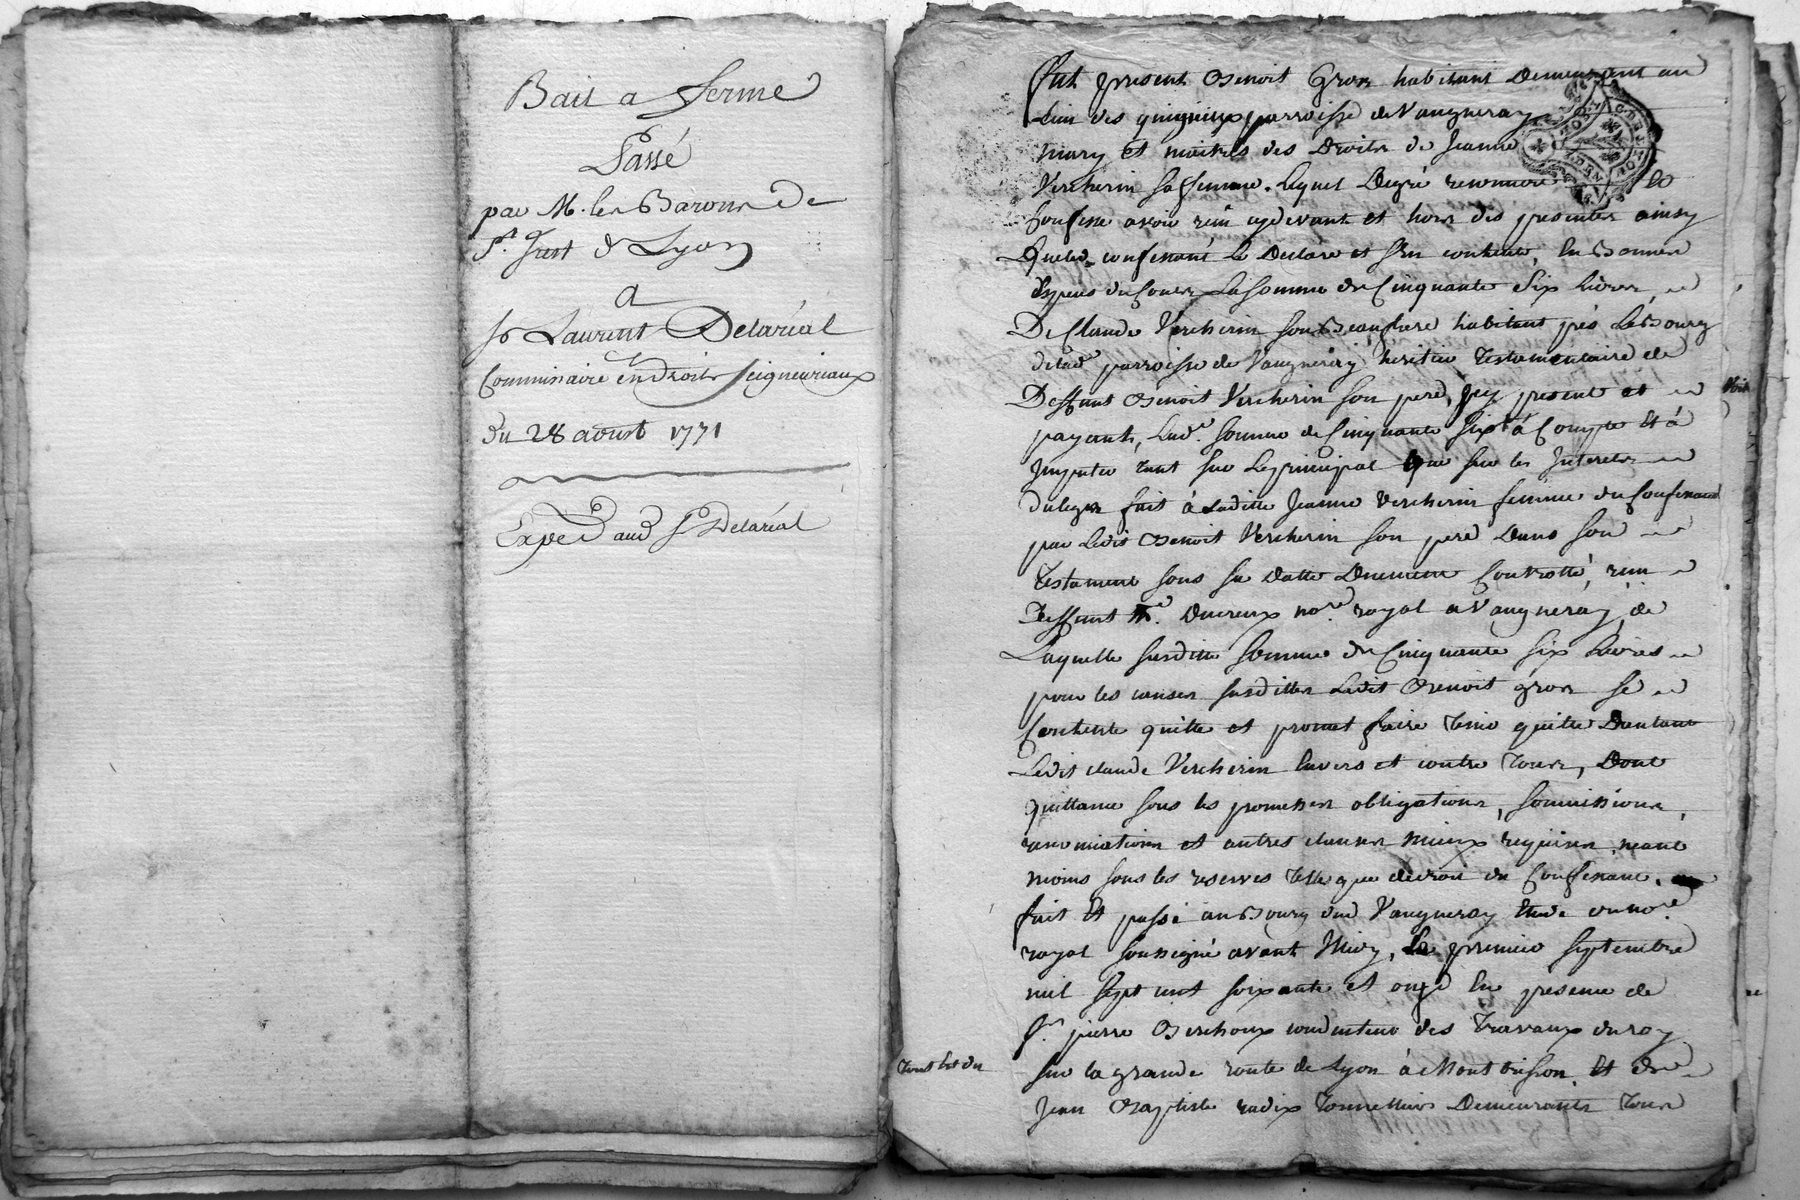 Bail a ferme
Passé
par M. les Barons De
St. Just de Lyon
a
Sr Laurent Delaréal
Commissaire en droits seigneuriaux
du 28 aoust 1771
Exped aud Sr Delaréal
Fut present Benoit Gros habitant Demeurant au
Lieu des parroisse de Vaugneray
mary et maitres des Droits de Jeanne
Vercherin sa femme. lequel De gré reconnoit et
Confesse avoir reçu cydevant et hors des presentes ainsy
Que led. confessant le Declare et s'en contente, en Bonnes
Especes du Cours La somme de Cinquante Six Livres
De Claude Vercherin son Beaufrere habitant près Le Bourg
de lad. parroisse de Vaugneray heritier Testamentaire de
Deffunt Benoit Vercherin son pere, Icy present et
payant, Lad. somme de Cinquante six à Compte et à
Imputer tant sur Le principal que sur les Interets
du legs fait à Laditte Jeanne Vercherin femme du Confessant
par Ledit Benoit Vercherin son pere Dans son
Testament sous sa Datte Duement Controllé, reçu
Deffunt Me. Ducreux nore. royal a Vaugneray, de
Laquelle susditte somme de Cinquante six Livres
pour les causes susdittes Ledit Benoit gros se
Contente quitte et promet faire Tenir quitte Dautant
Ledit claude Vercherin Envers et contre Tous, Dont
quittance sous les promesses obligations, soumissions,
renonciations et autres clauses mieux requises. neant
moins sous les reserves telle que de droit du Confessant.
fait et passé au Bourg dud Vaugneray Etude du nore.
royal soussigné avant Midy, Le premier septembre
mil sept cent soixante et onze En presence de
Sr. pierre Berchoux conducteur des Travaux du roy
sur la grande route de Lyon à Montbrison. et de
Jean Baptiste radix Tonnellier Demeurants Tous